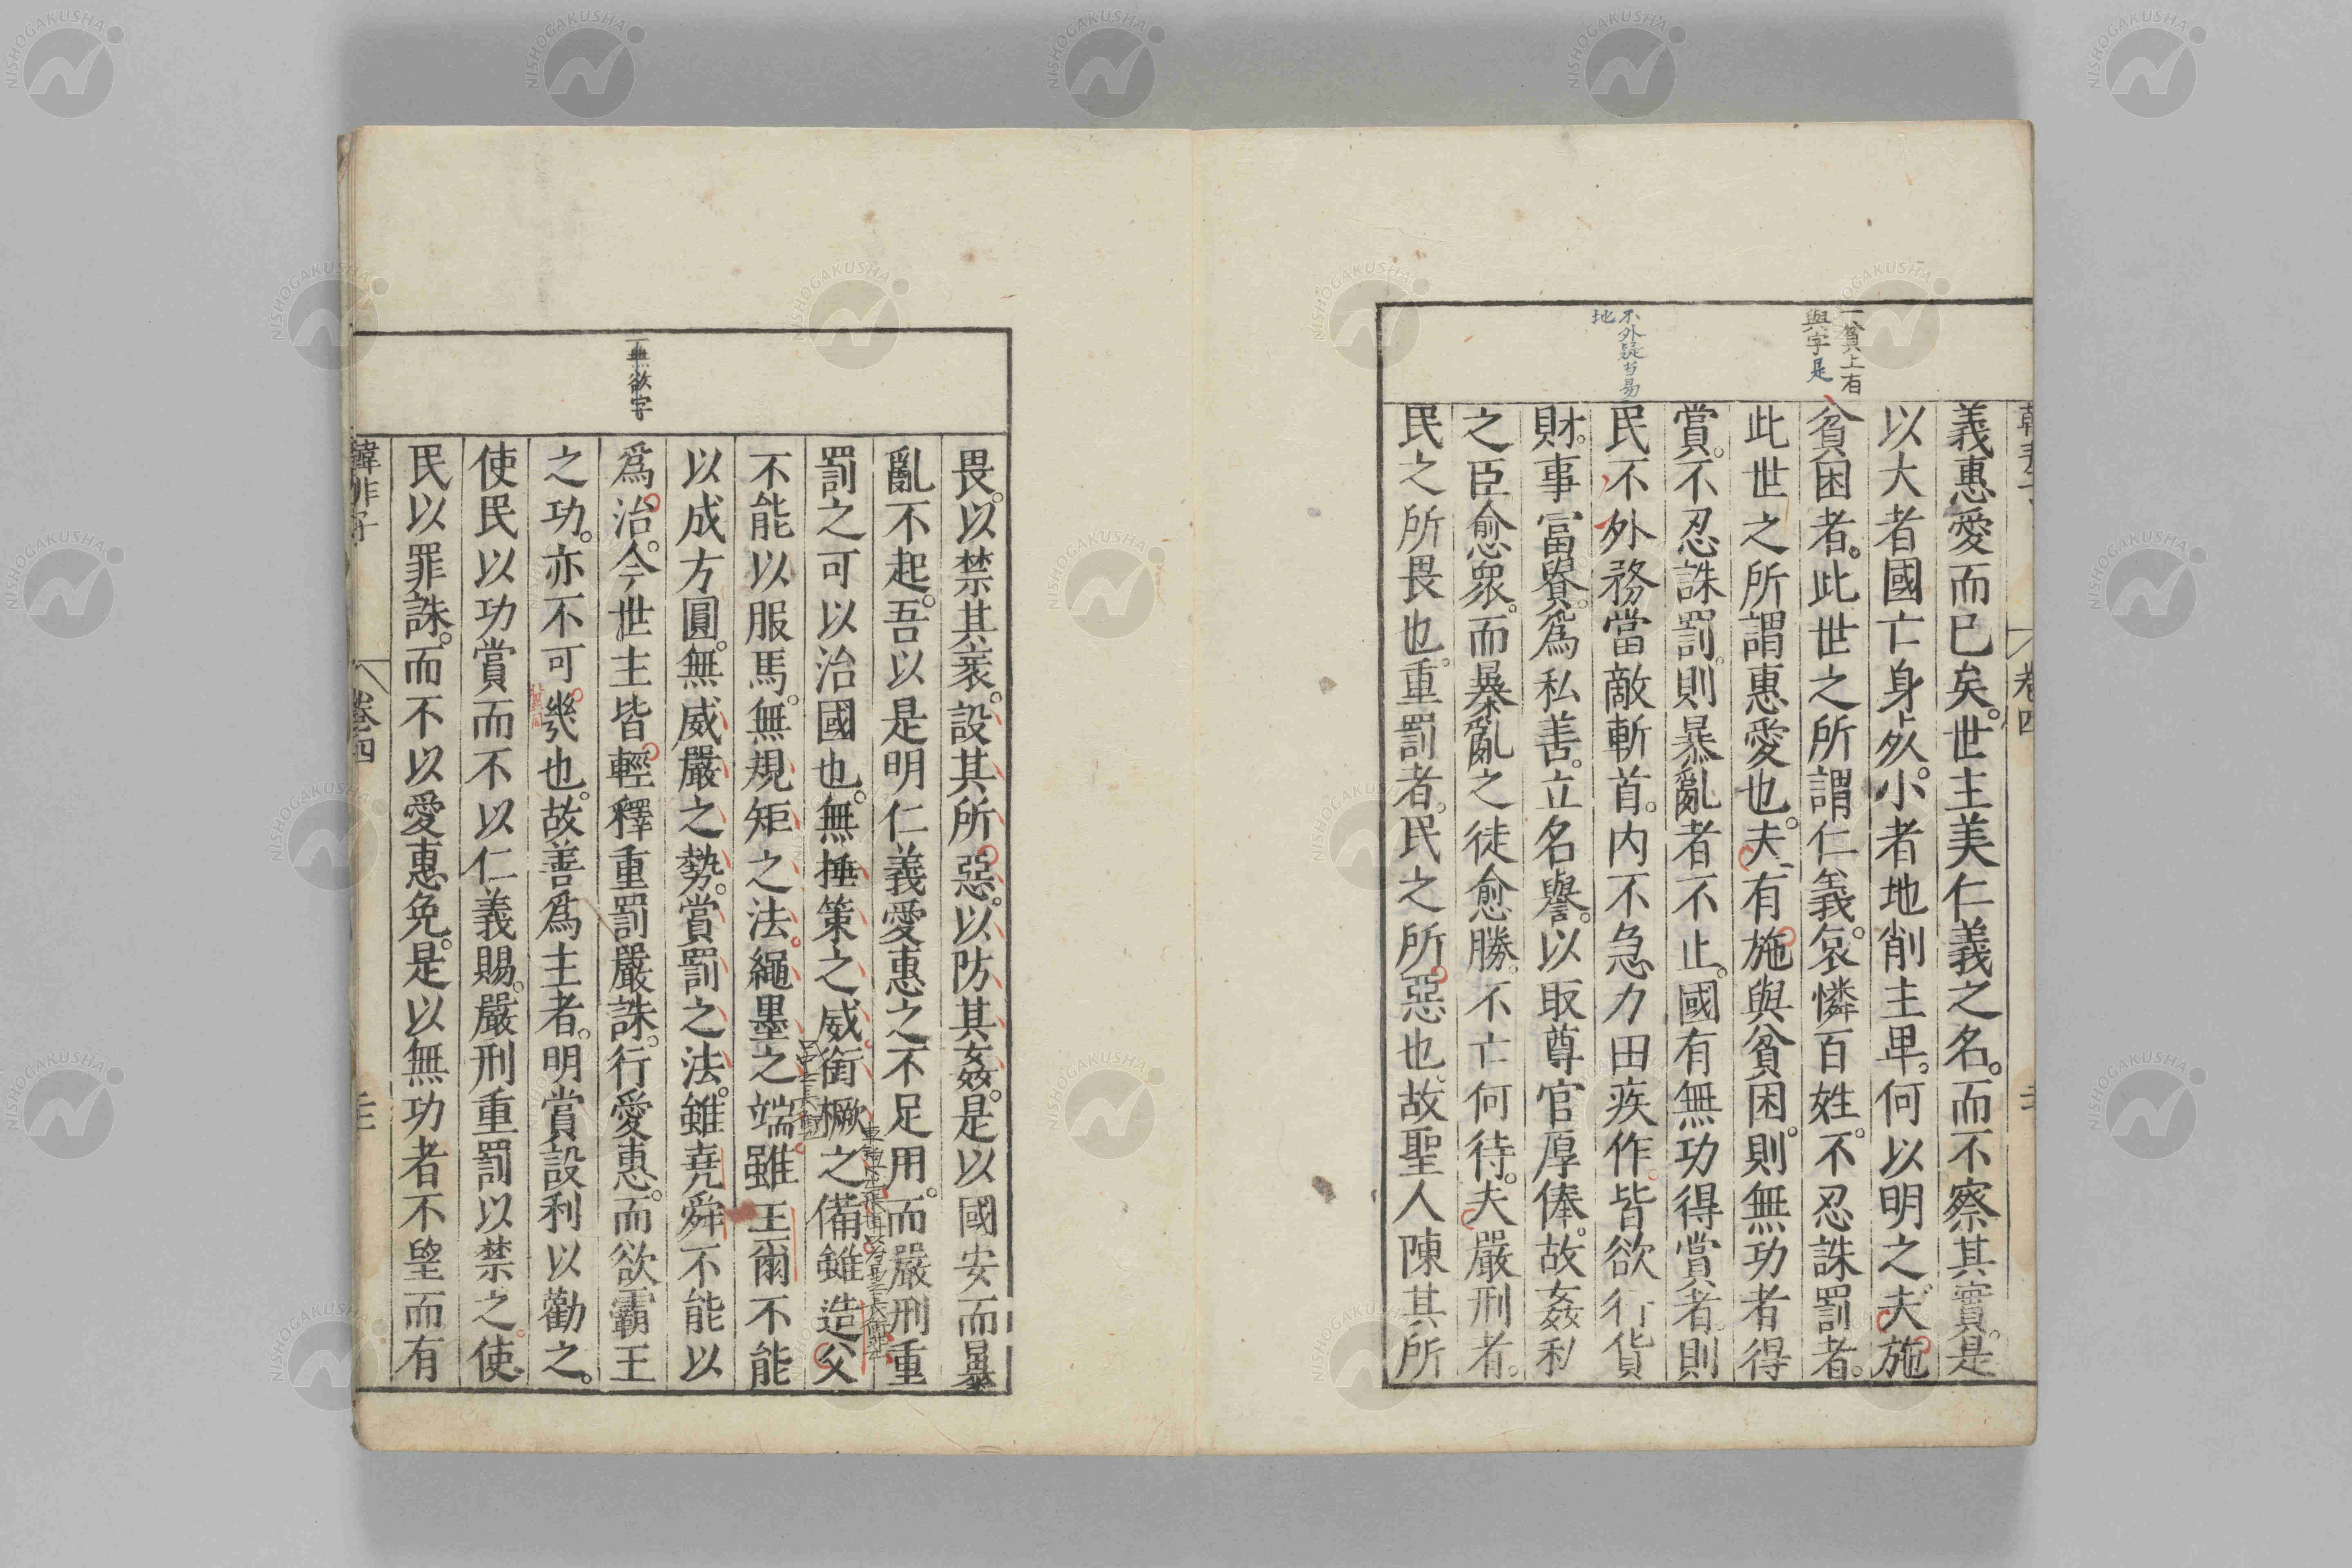 韓非子
卷四
一貧上有
與字是
不外疑當易
地
義惠愛而已矣。世主美仁義之名。而不察其實。是
以大者國亡身死。小者地削主卑。何以明之。夫施
貧困者。此世之所謂仁義。哀憐百姓。不忍誅罰者。
此世之所謂惠愛也。夫有施與貧困。則無功者得
賞。不忍誅罰。則暴亂者不止。國有無功得賞者。則
民不外務當敵斬首。内不急力田疾作。皆欲行貨
財。事富貴。爲私善。立名譽。以取尊官厚俸。故姦私
之臣愈衆。而暴亂之徒愈勝。不亡何待。夫嚴刑者。
民之所畏也。重罰者。民之所惡也。故聖人陳其所
一無欲字
畏。以禁其衺。設其所惡。以防其姦。是以國安而暴
亂不起。吾以是明仁義愛惠之不足用。而嚴刑重
罰之可以治國也。無捶策之威。銜橛之備。雖造父
不能以服馬。無規矩之法。繩墨之端。雖王爾不能
以成方圓。無威嚴之勢。賞罰之法。雖堯舜不能以
爲治。今世主皆輕釋重罰嚴誅。行愛惠。而欲霸王
之功。亦不可幾也。故善爲主者。明賞設利以勸之。
使民以功賞而不以仁義賜。嚴刑重罰以禁之。使
民以罪誅。而不以愛惠免。是以無功者不望而有
韓非子
卷四
NISHOGAKUSHA